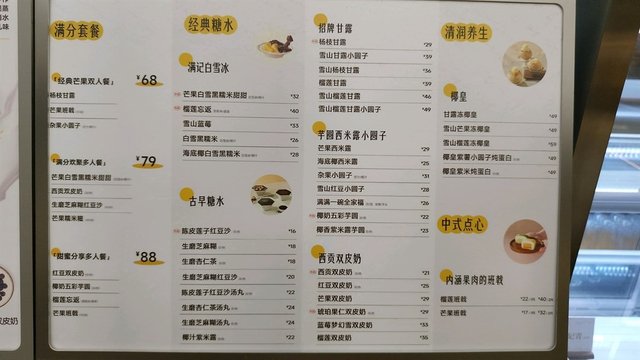 满分套餐
「经典芒果双人餐」 ¥68
杨枝甘露
芒果班戟
杂果小圆子
「满分欢聚多人餐」 ¥79
芒果白雪黑糯米甜甜
西贡双皮奶
生磨芝麻糊
芒果糯米糍
「甜蜜分享多人餐」 ¥88
红豆双皮奶
椰奶五彩芋圆
榴莲忘返
芒果班戟
经典糖水
满记白雪冰
芒果白雪黑糯米甜甜 ¥32
榴莲忘返 ¥40
雪山蓝莓 ¥33
白雪黑糯米 ¥26
海底椰白雪黑糯米 ¥28
古早糖水
陈皮莲子红豆沙 ¥16
生磨芝麻糊 ¥18
生磨杏仁茶 ¥18
生磨芝麻糊红豆沙 ¥20
陈皮莲子红豆沙汤丸 ¥22
生磨杏仁茶汤丸 ¥24
生磨芝麻糊汤丸 ¥24
椰汁紫米露 ¥22
招牌甘露
杨枝甘露 ¥29
雪山甘露小圆子 ¥39
雪山杨枝甘露 ¥36
榴莲甘露 ¥39
雪山榴莲甘露 ¥46
雪山榴莲甘露小圆子 ¥49
芋圆西米露小圆子
芒果西米露 ¥29
海底椰西米露 ¥25
杂果小圆子 ¥31
雪山红豆小圆子 ¥28
满满一碗全家福 ¥26
椰奶五彩芋圆 ¥22
椰香紫米露芋圆 ¥23
西贡双皮奶
西贡双皮奶 ¥21
红豆双皮奶 ¥25
芒果双皮奶 ¥29
琥珀果仁双皮奶 ¥29
蓝莓梦幻雪双皮奶 ¥33
榴莲双皮奶 ¥35
清润养生
椰皇
甘露冻椰皇 ¥49
雪山芒果冻椰皇 ¥49
雪山榴莲冻椰皇 ¥59
椰皇紫薯小圆子炖蛋白 ¥49
椰皇紫米炖蛋白 ¥49
中式点心
内涵果肉的班戟
榴莲班戟 ¥22 ¥40
芒果班戟 ¥17 ¥32
双皮奶